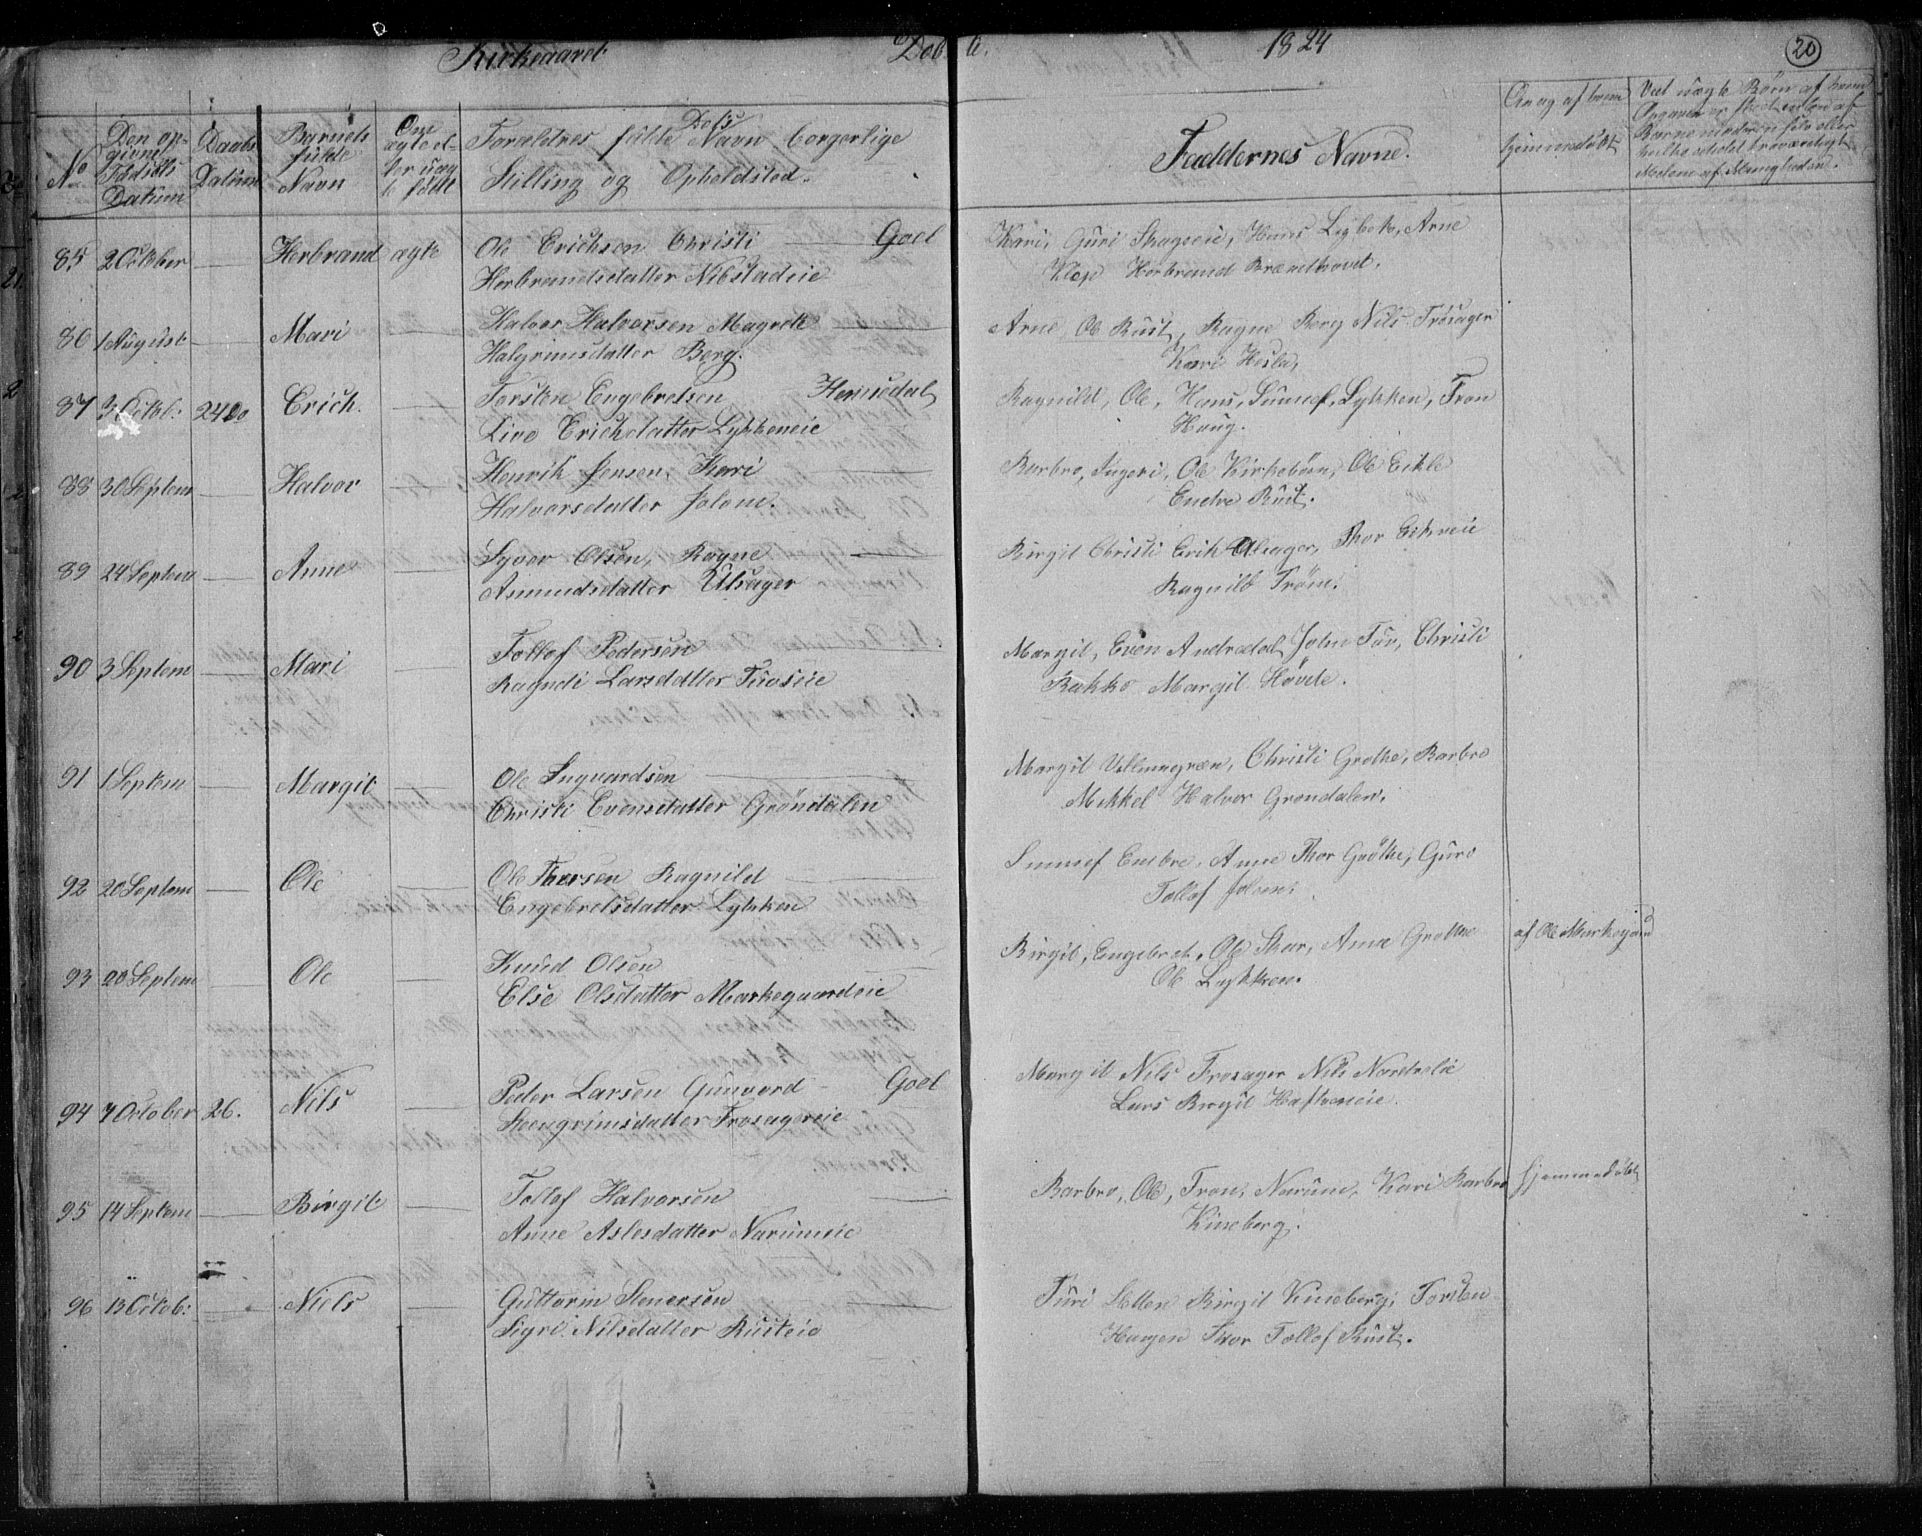 Kirkegaard Døbte. 1824 20
No
Den op-
givne
Fødsels
Datum
Daabs
Datum
Barnets
fulde
Navn
Om
ægte el-
ler uæg-
te født
Forældres fulde Navn borgerlige
Stilling og Opholdsted.
Faddernes Navne.
Om og af hvem
hjemmedøbt
Ved uægte Børn af hvem
85 2 October — Herbrand ægte Ole Erichsen Christi — Goel
Herbrandsdatter Nibstadeie
Kari, Guri Skagseie, Hans Lybek, Arne
Klop Herbrand Brændhovet.
86 1 August — Mari — Halvor Halvorsen Magrete —
Halgrimsdatter Berg.
Arne, Ole Rust, Ragne Berg Nils Trøsager
Kari Hesla,
87 3 Octob: 24 do Erich. — Torsten Engebretsen Hemsedal
Live Erichdatter Lykkeneie
Ragnild, Ole, Hans, Sunnef, Lykken, Tron
Haug.
88 30 Septem — Halvor — Henrik Jensen, Kari —
Halvorsdatter Jolem.
Barbro, Ingeri, Ole Kirkebøen, Ole Eikle
Endre Rust.
89 24 Septem — Anne — Syver Olsen, Ragne —
Asmundsdatter Ulsager
Birgit Christi Erik Ulsager, Thor Eikreie
Ragnild Trøim.
90 3 Septem — Mari — Tollof Pedersen
Ragndi Larsdatter Tuvseie
Margit, Even Andredal, John Tuv, Christi
Bakko Margit Høvle.
91 1 Septem — Margit — Ole Inguardsen —
Christi Evensdatter Grøndalen
Margit Ullmnegræn, Christi Grøthe, Barbro
Mikkel Halvor Grøndalen.
92 20 Septem — Ole — Ole Thorsen Ragnild —
Engebretsdatter Lykken
Sunnef Embre, Anne Thor Grøthe, Guro
Tollof Jolsen.
93 20 Septem Ole — Knud Olsen
Else Olsdatter Markegaardeie
Birgit, Engebret, Ole Thor, Anne Grøthe
Ole Lykkren.
af Ole Markegaard
94 7 October 26. Nils — Peder Larsen Gunvord — Goel
Steengrimsdatter Trøsagereie
Margit Nils Trøsager Nils Nordrelie
Lars Birgit Haftoneie
95 14 Septem — Birgit — Tollof Halvorsen —
Anne Aslesdatter Narumeie
Barbro, Ole, Tron, Narum, Kari Barbro
Kineberg.
hjemmedøbt
96 13 Octob: — Niels — Guttorm Stenersen —
Sigri Nilsdatter Rusteie
Turi Letten Birgit Kineberg, Torsten
Haugen Thor Tollof Rust.